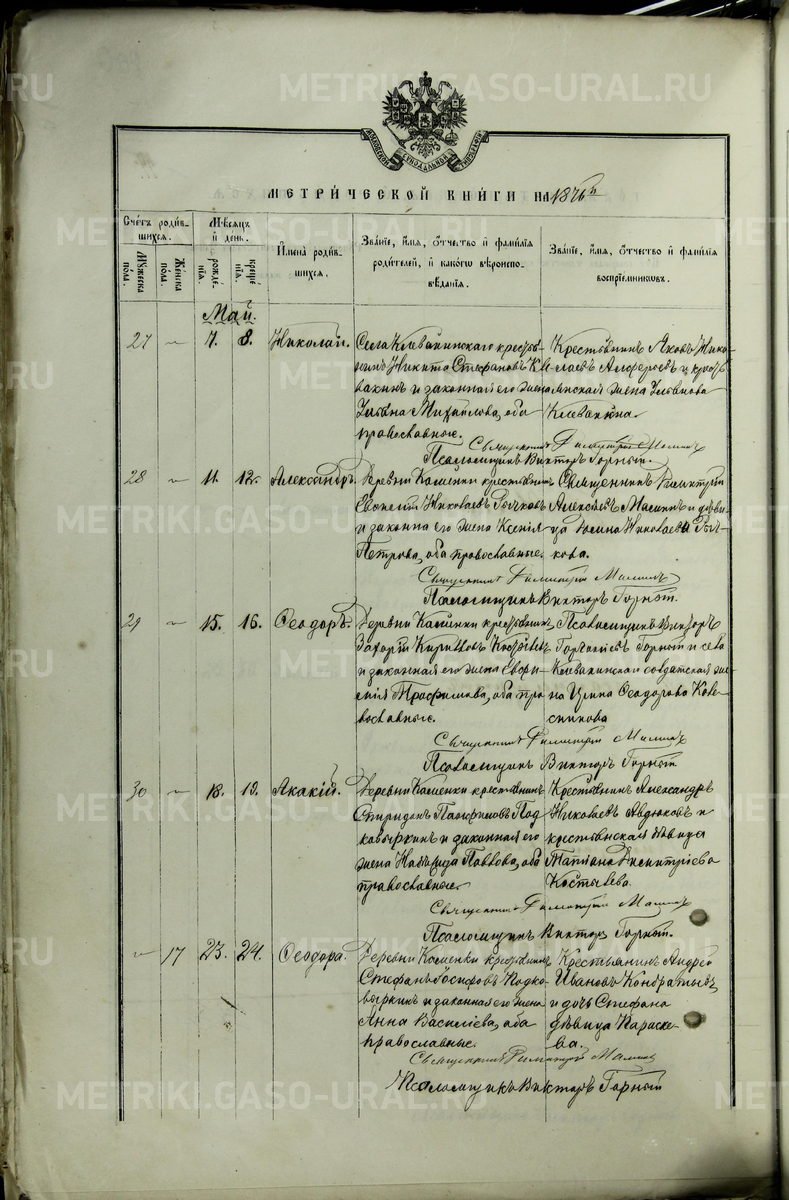 METRIKI.GASO-URAL.RU
МОСКОВСКОЙ СѴНОДАЛЬНОЙ ТИПОГРАФІИ
МЕТРИ́ЧЕСКОЙ КНИ́ГИ НА 1876 г.
Сче́тъ роди́в-
шихсѧ.
Му́жеска
по́ла.
Же́нска
по́ла.
Мѣ́сѧцъ
и҆ де́нь.
рожде́-
нїѧ.
креще́
нїѧ.
И҆мена̀ роди́в-
шихсѧ.
Зва́нїе, и҆́мѧ, ѻ҆́тчество и҆ фами́лїѧ
роди́телей, и҆ како́гѡ вѣроиспо-
вѣ́данїѧ.
Зва́нїе, и҆́мѧ, ѻ҆́тчество и҆ фами́лїѧ
воспрїе́мникѡвъ.
Май.
27 7. 8. Николай.
Села Клевакинскаго крестья-
нинъ Никита Стефановъ Кле-
вакинъ и законная его жена
Ульяна Михайлова, оба
православные.
Крестьянинъ Яковъ Нико-
лаевъ и кресть-
янская жена
Клевакина.
Священникъ Димитрій Малинъ
Псаломщикъ Викторъ Горный.
28 11. 12. Александръ.
Деревни Каменки крестьянинъ
Николаевъ Рычковъ
и законная его жена Ксенія
Петрова, оба православные.
Священникъ Димитрій
Алексѣевъ Малинъ и дѣви-
ца Николаева Рыч-
кова.
Священникъ Димитрій Малинъ
Псаломщикъ Викторъ Горный.
29 15. 16. Ѳеодоръ.
Деревни Каменки крестьянинъ
Захарій Кириловъ
и законная его жена Евфи-
Трофимова, оба пра-
вославные.
Псаломщикъ Викторъ
Горный и села
Клевакинскаго солдатская же-
на Ѳеодорова
Священникъ Димитрій Малинъ
Псаломщикъ Викторъ Горный
30 18. 19. Акакій.
Деревни Каменки крестьянинъ
Спиридонъ Памфиловъ Под-
ковыркинъ и законная его
жена Павлова, оба
православные.
Крестьянинъ Александръ
Николаевъ Авдюковъ и
крестьянская дѣвица
Матрона Димитріева
Костылева.
Священникъ Димитрій Малинъ
Псаломщикъ Викторъ Горный.
17 23. 24. Ѳеодора.
Деревни Каменки крестьянинъ
Стефанъ Іосифовъ Подко-
выркинъ и законная его жена
Анна Василіева, оба
православные.
Крестьянинъ Андрей
Ивановъ Кондратьевъ
и дочь Стефана
дѣвица Параске-
ва.
Священникъ Димитрій Малинъ
Псаломщикъ Викторъ Горный